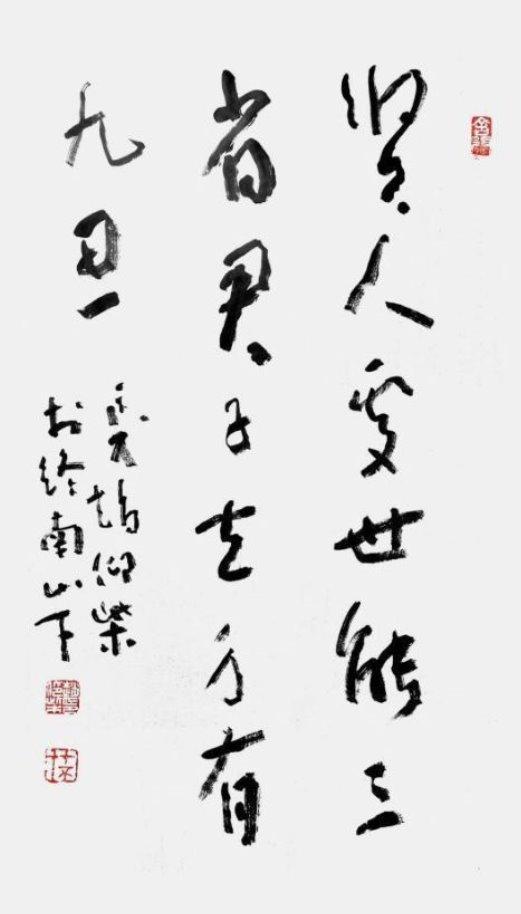 賢人處世能三
省君子立身有
九思
於終南山下